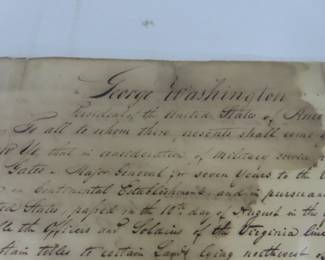 George Washington
President of the United States of Amer
To all to whom these presents shall come
Ye, that in consideration of Military service
Gates a Major General for seven Years to the
on Continental Establishment, and in pursuan
ted States, passed on the 10th day of August in the
the Officers and Soldiers of the Virginia Line
tain titles to certain Lands lying northwest of